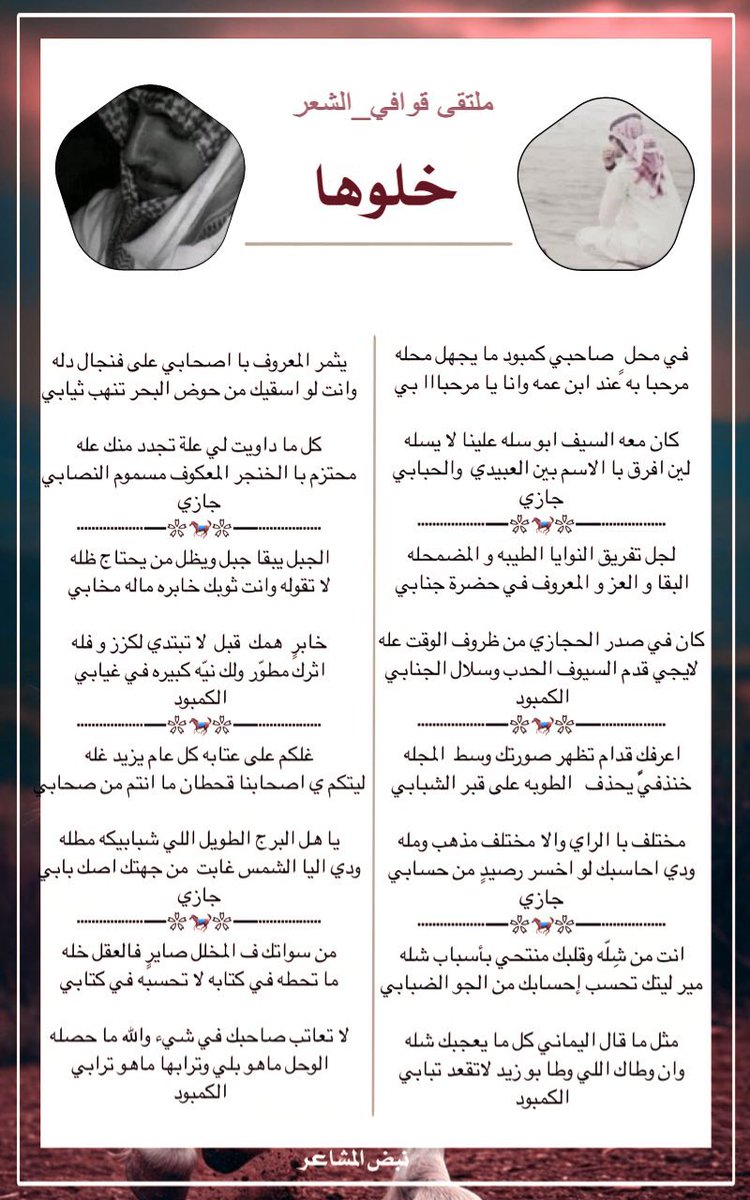 ملتقى قوافي_الشعر
خلوها
في محل ٍ صاحبي كمبود ما يجهل محله
مرحبا به ٍعند ابن عمه وانا يا مرحبااا بي
كان معه السيف ابو سله علينا لا يسله
لين افرق با الاسم بين العبيدي والحبابي
جازي
لجل تفريق النوايا الطيبه و المضمحله
البقا و العز و المعروف في حضرة جنابي
كان في صدر الحجازي من ظروف الوقت عله
لايجي قدم السيوف الحدب وسلال الجنابي
الكمبود
اعرفك قدام تظهر صورتك وسط المجله
خنذفيٍّ يحذف الطوبه على قبر الشبابي
مختلف با الراي والا مختلف مذهب ومله
ودي احاسبك لو اخسر رصيدٍ من حسابي
جازي
انت من شِلّه وقلبك منتحي بأسباب شله
مير ليتك تحسب إحسابك من الجو الضبابي
مثل ما قال اليماني كل ما يعجبك شله
وان وطاك اللي وطا بو زيد لاتقعد تبابي
الكمبود
يثمر المعروف با اصحابي على فنجال دله
وانت لو اسقيك من حوض البحر تنهب ثيابي
كل ما داويت لي علة تجدد منك عله
محتزم با الخنجر المعكوف مسموم النصابي
جازي
الجبل يبقا جبل ويظل من يحتاج ظله
لا تقوله وانت ثوبك خابره ماله مخابي
خابرٍ همك قبل لا تبتدي لكزز و فله
اثرك مطوّر ولك نيّه كبيره في غيابي
الكمبود
غلكم على عتابه كل عام يزيد غله
ليتكم ي اصحابنا قحطان ما انتم من صحابي
يا هل البرج الطويل اللي شبابيكه مطله
ودي اليا الشمس غابت من جهتك اصك بابي
جازي
من سواتك ف المخلل صايرٍ فالعقل خله
ما تحطه في كتابه لا تحسبه في كتابي
لا تعاتب صاحبك في شيء والله ما حصله
الوحل ماهو بلي وترابها ماهو ترابي
الكمبود
نبض المشاعر